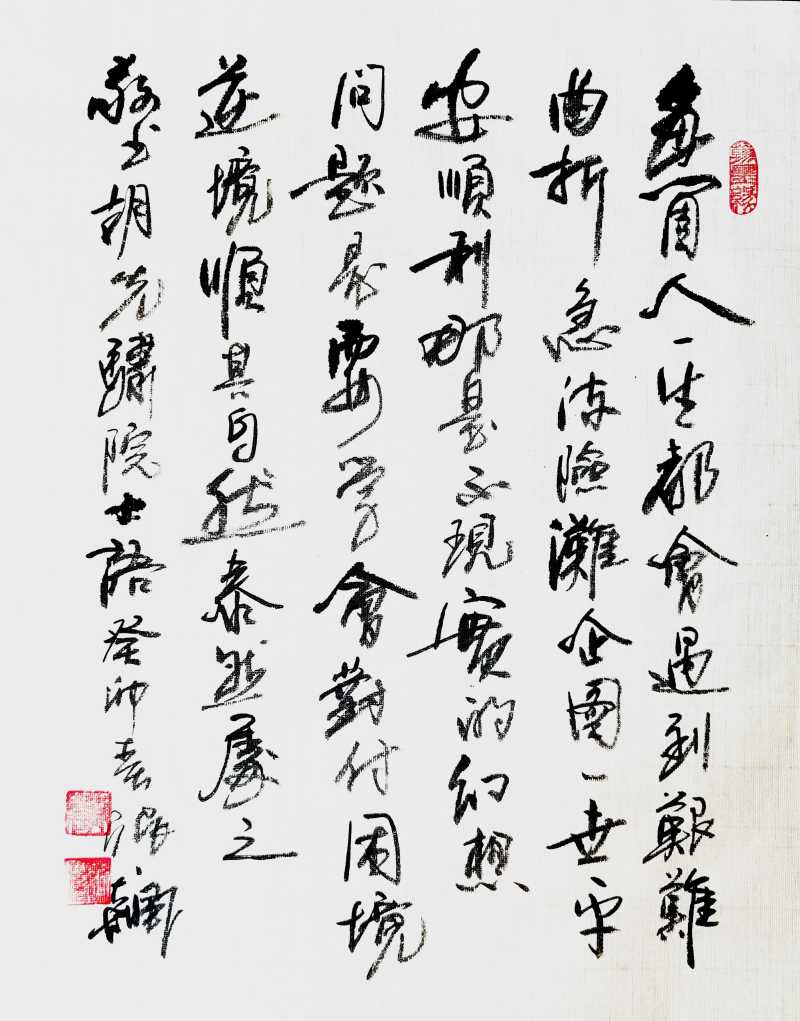 每箇人一生都會遇到艱難
曲折急流險灘企圖一世平
安順利那是不現實的幻想
問題是要學會對付困境
逆境順其自然泰然處之
敬書胡先驌院士語癸卯春